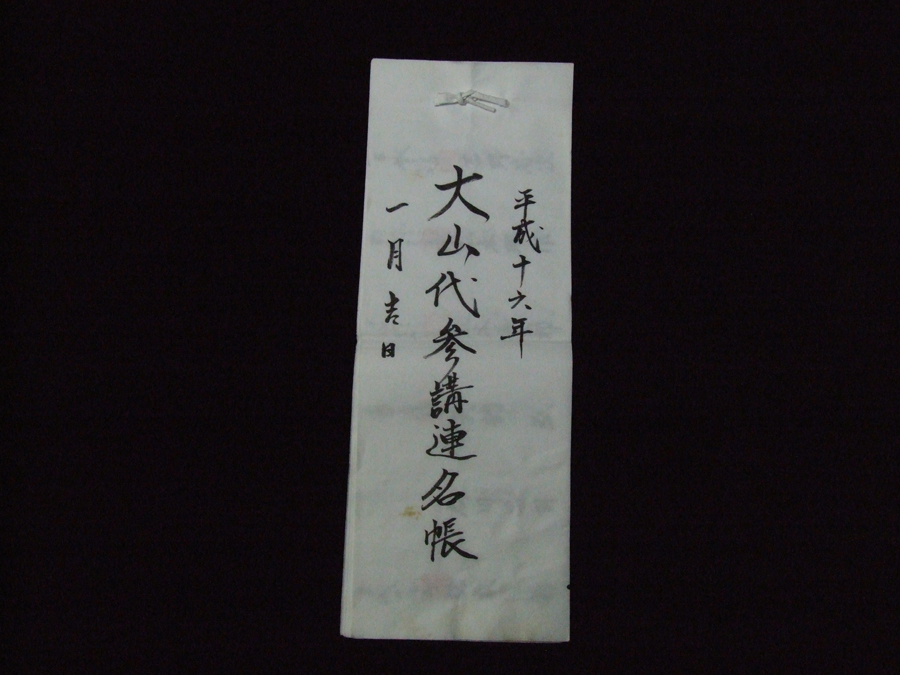 平成十六年
大山代参講連名帳
一月吉日